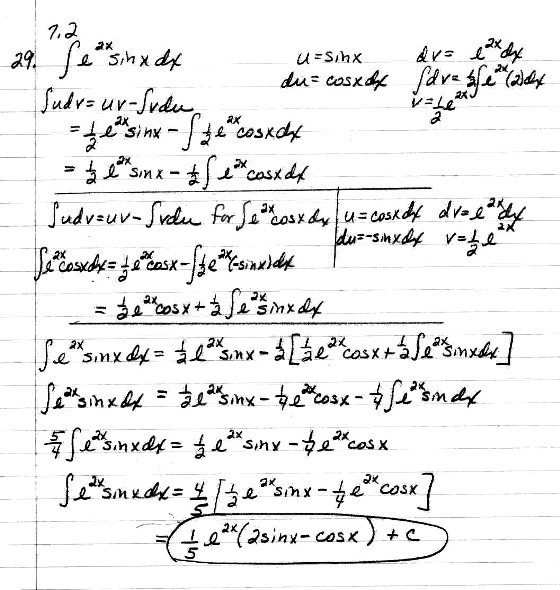 7.2
29. ∫e^{2x} sinx dx    u = sinx    dv = e^{2x}dx
du = cosxdx    ∫dv = ½∫e^{2x}(2)dx
∫udv = uv - ∫vdu    v = ½e^{2x}
= ½e^{2x}sinx - ∫½e^{2x}cosxdx
= ½e^{2x}sinx - ½∫e^{2x}cosxdx
∫udv = uv - ∫vdu for ∫e^{2x}cosxdx    u = cosxdx    dv = e^{2x}dx
du = -sinxdx    v = ½e^{2x}
∫e^{2x}cosxdx = ½e^{2x}cosx - ∫½e^{2x}(-sinx)dx
= ½e^{2x}cosx + ½∫e^{2x}sinxdx
∫e^{2x}sinxdx = ½e^{2x}sinx - ½[½e^{2x}cosx + ½∫e^{2x}sinxdx]
∫e^{2x}sinxdx = ½e^{2x}sinx - ¼e^{2x}cosx - ¼∫e^{2x}sindx
5/4∫e^{2x}sinxdx = ½e^{2x}sinx - ¼e^{2x}cosx
∫e^{2x}sinxdx = 4/5[½e^{2x}sinx - ¼e^{2x}cosx]
= 1/5 e^{2x}(2sinx - cosx) + c